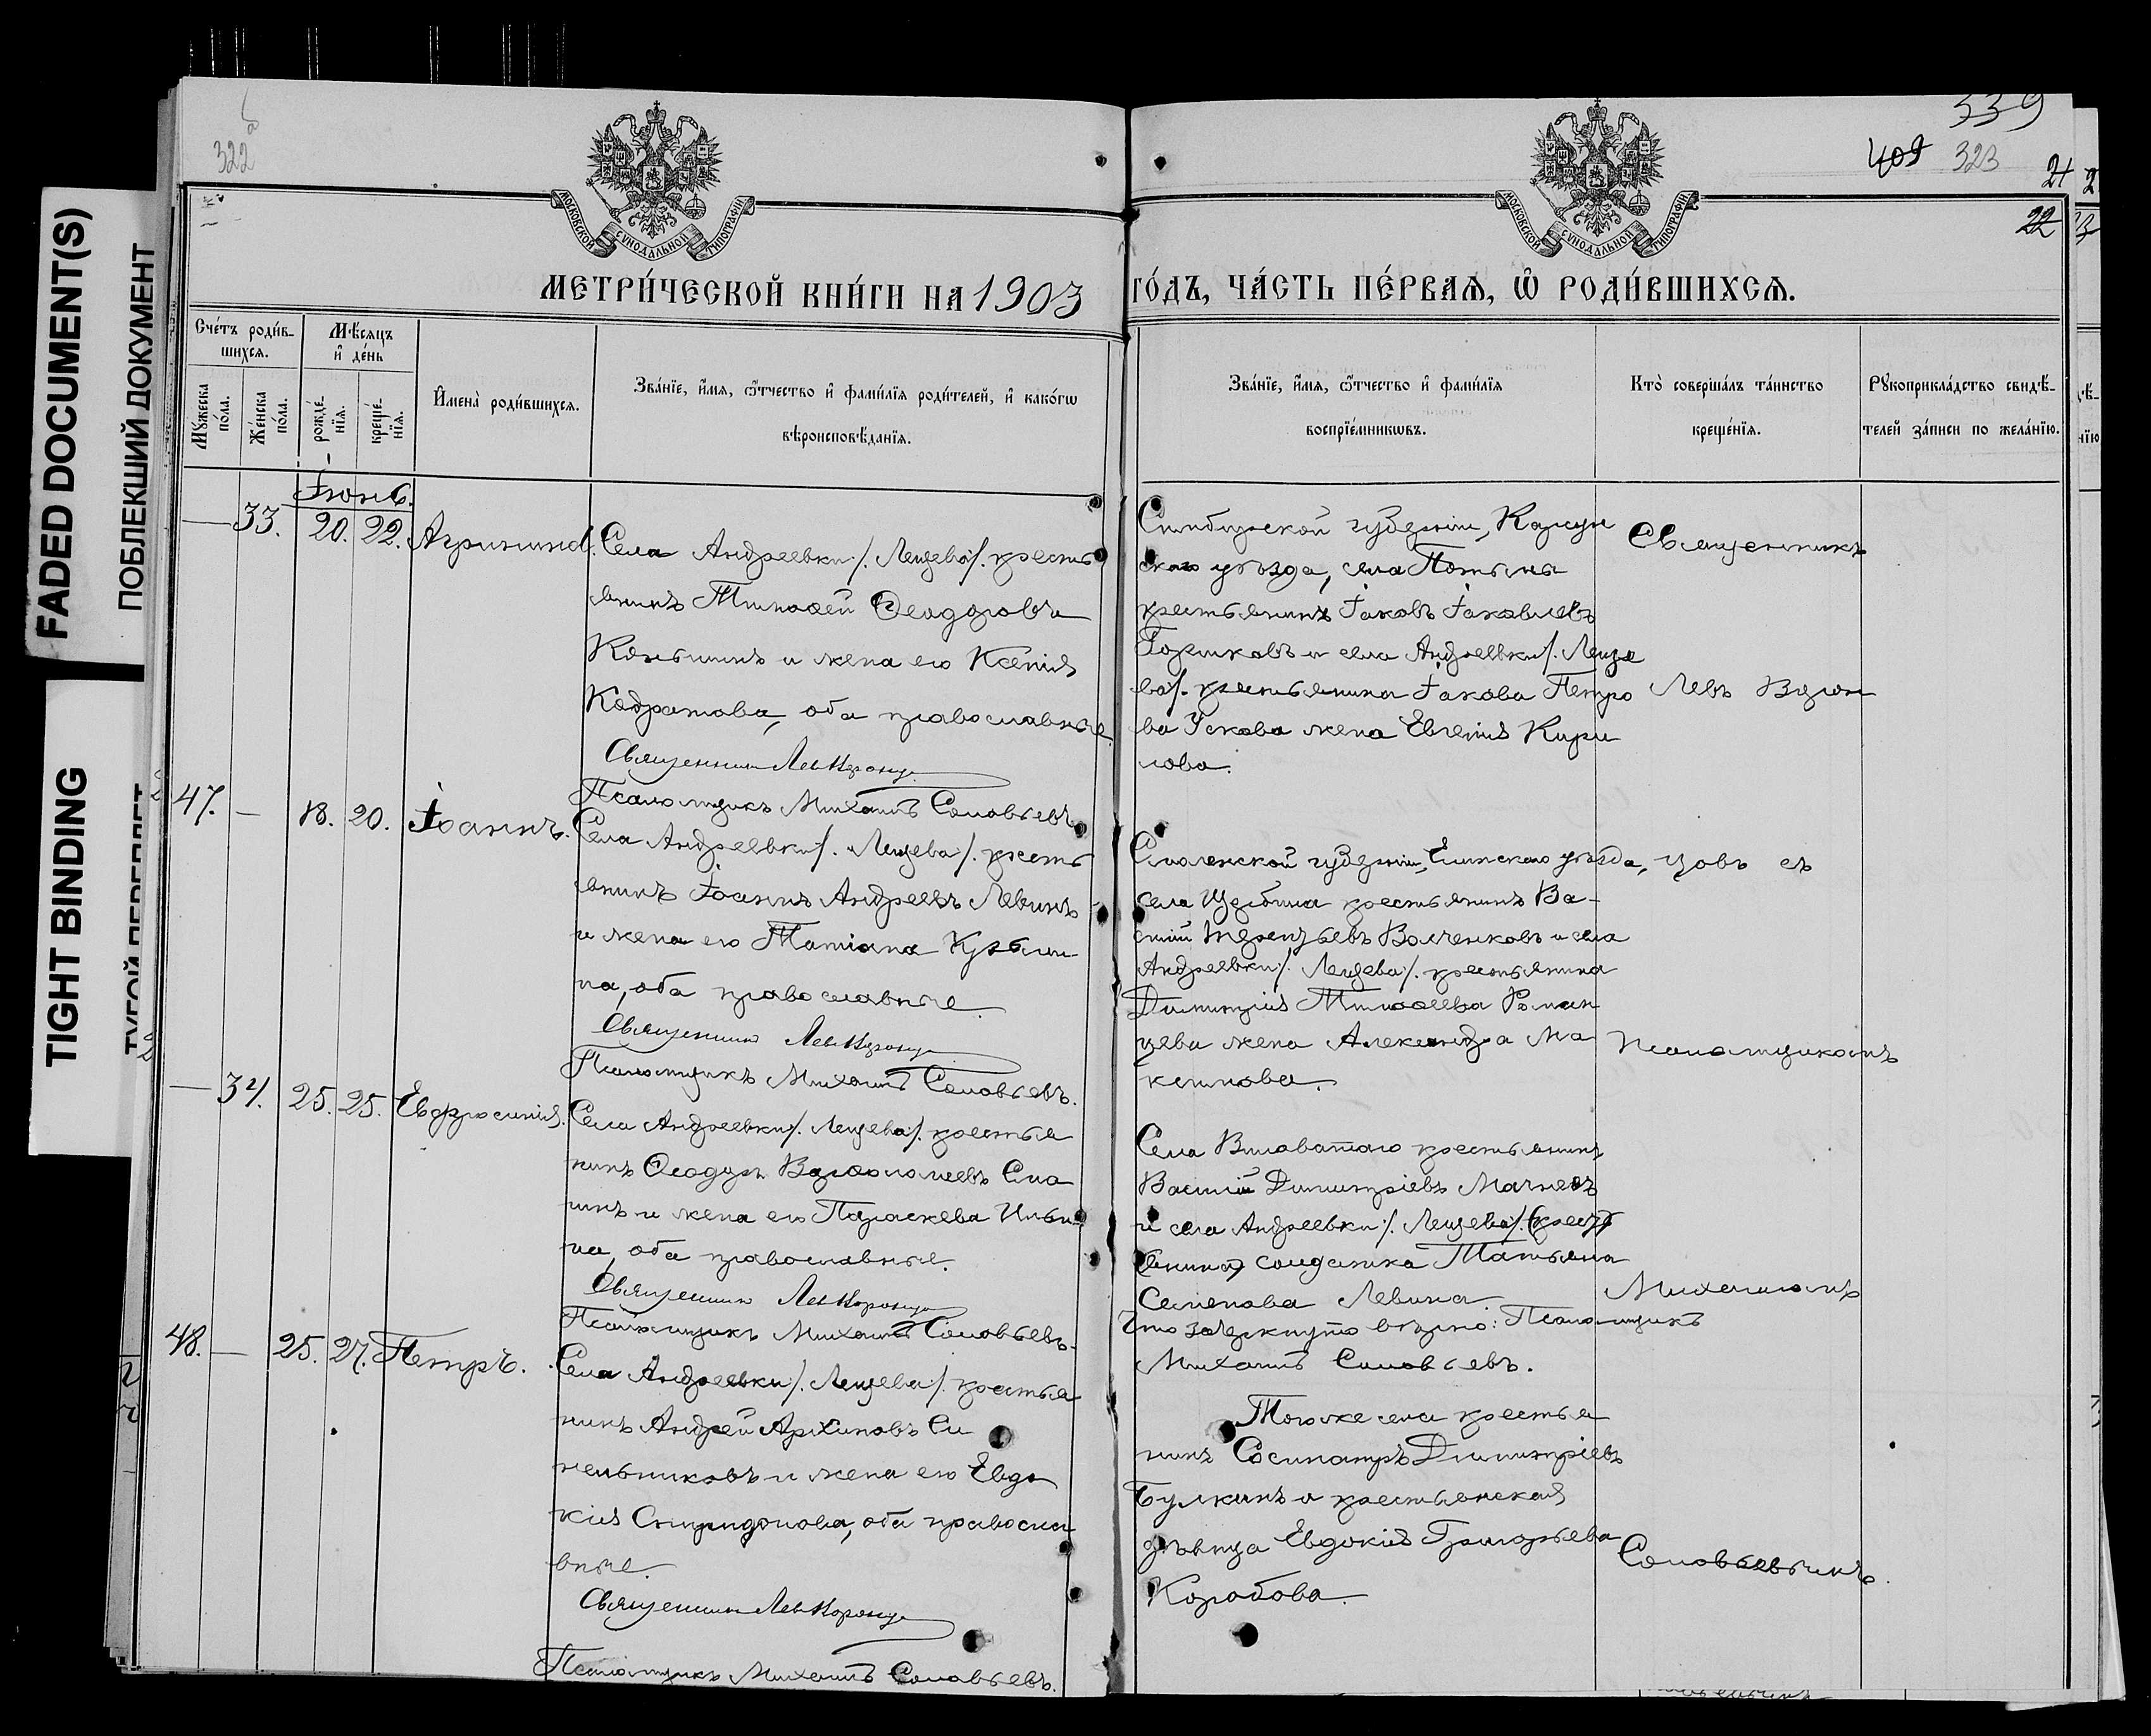 FADED DOCUMENT(S)
ПОБЛЕКШИЙ ДОКУМЕНТ
TIGHT BINDING
322
539
409 323
21
22
МОСКОВСКОЙ СѴНОДАЛЬНОЙ ТИПОГРАФІИ
МОСКОВСКОЙ СѴНОДАЛЬНОЙ ТИПОГРАФІИ
МЕТРИ́ЧЕСКОЙ КНИ́ГИ НА 1903 ГО́ДЪ, ЧА́СТЬ ПЕ́РВАѦ, Ѡ҆ РОДИ́ВШИХСѦ.
Сче́тъ роди́в-
шихсѧ.
Мꙋ́жеска по́ла.
Же́нска по́ла.
Мѣ́сѧцъ и҆ де́нь
рожде́-нїѧ.
креще́-нїѧ.
И҆мена̀ роди́вшихсѧ.
Зва́нїе, и҆́мѧ, ѻ҆́тчество и҆ фами́лїѧ роди́телей, и҆ како́гѡ
вѣроисповѣ́данїѧ.
Зва́нїе, и҆́мѧ, ѻ҆́тчество и҆ фами́лїѧ
воспрїе́мникѡвъ.
Кто̀ соверша́лъ та́инство
креще́нїѧ.
Рꙋкоприкла́дство свидѣ́-
телей за́писи по жела́нїю.
Іюнь.
— 33. 20. 22. Агрипина.
Села Андреевки /. Лещева /. кресть
янинъ Тимоѳей Ѳеодоровъ
Коньшинъ и жена его Ксенія
Кодратова, оба православные.
Священникъ Левъ Воронцо
Псаломщикъ Михаилъ Соловьевъ
Симбирской губерніи, Карсун
скаго уѣзда, села Потьмы
крестьянинъ Іаковъ Іаковлевъ
Горшковъ и села Андреевки /. Леще
ва /. крестьянина Іакова Петро
ва Ускова жена Евгенія Кири
лова.
47. — 18. 20. Іоаннъ.
Села Андреевки /. Лещева /. кресть
янинъ Іоаннъ Андреевъ Левинъ
и жена его Татіана Кузьми
на, оба православные.
Священникъ Левъ Воронцо
Псаломщикъ Михаилъ Соловьевъ.
Смоленской губерніи, Елинскаго уѣзда,
села Щербина крестьянинъ Ва-
силій Терентьевъ Волченковъ и села
Андреевки /. Лещева /. крестьянина
Димитрія Тимоѳеева Роман
цева жена Александра Ма
ксимова.
— 34. 25. 25. Евфросинія.
Села Андреевки /. Лещева /. крестья
нинъ Ѳеодоръ Варѳоломеевъ Сма
шнъ и жена его Параскева Ильи
на, оба православные.
Священникъ Левъ Воронцо
Псаломщикъ Михаилъ Соловьевъ.
Села Виловатаго крестьянинъ
Василій Димитріевъ Мачневъ
и села Андреевки /. Лещева /. (кресть
янина) солдатка Татьяна
Семенова Левина.
Что зачеркнуто вѣрно: Псаломщикъ
Михаилъ Соловьевъ.
48. — 25. 27. Петръ.
Села Андреевки /. Лещева /. крестья
нинъ Андрей Архиповъ Си
нельниковъ и жена его Евдо
кія Спиридонова, оба правосла
вные.
Священникъ Левъ Воронцо
Псаломщикъ Михаилъ Соловьевъ.
Того же села крестья
нинъ Сосипатръ Димитріевъ
Булкинъ и крестьянская
дѣвица Евдокія Григорьева
Коробова.
Священникъ
Левъ Ворон
цовъ съ
псаломщикомъ
Михаиломъ
Соловьевымъ.